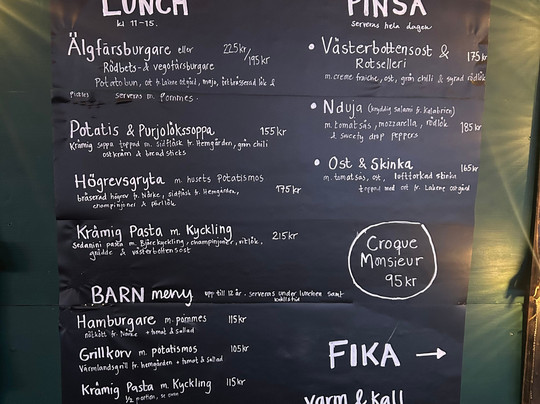 LUNCH
kl 11-15.
Älgfärsburgare eller 225kr/195kr
Rödbets- & vegofärsburgare
Potatobun, ost fr Lakene ostgård, majo, lök &
serveras m. Pommes.
Potatis & Purjolökssoppa 155kr
Krämig soppa toppad m. sidfläsk fr. Hemgården, grön chili
ostkräm & bread sticks
Högrevsgryta m. husets Potatismos 175kr
bräserad högrev fr. Närke, sidfläsk fr. Hemgården,
champinjoner & pärllök
Krämig Pasta m. Kyckling 215kr
Sedanini pasta m. Bjärekyckling, champinjoner, vitlök,
grädde & västerbottensost
BARN meny upp till 12 år. serveras under lunchen samt
kvällstid
Hamburgare m. pommes 115kr
nötkött fr. + tomat & sallad
Grillkorv m. potatismos 105kr
Värmlandsgrill fr. hemgården + tomat & sallad
Krämig Pasta m. Kyckling 115kr
1/2 portion, se ovan
PINSA
serveras hela dagen
• Västerbottensost & Rotselleri 175kr
m. creme fraiche, ost, grön chili & syrad rödlök
• Nduja (kryddig salami fr. Kalabrien)
m. tomatsås, mozzarella, rödlök 185kr
& sweety drop peppers.
• Ost & Skinka 165kr
m. tomatsås, ost, lufttorkad skinka
toppad med ost fr. Lakene ostgård
Croque
Monsieur
95kr
FIKA →
varm & kall